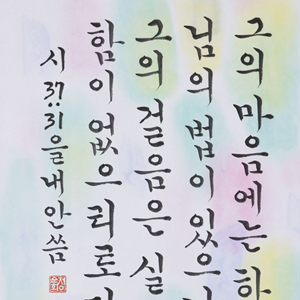 그의 마음에는 하
님의 법이 있으니
그의 걸음은 실
함이 없으리로다
시 37:31을 내안 씀